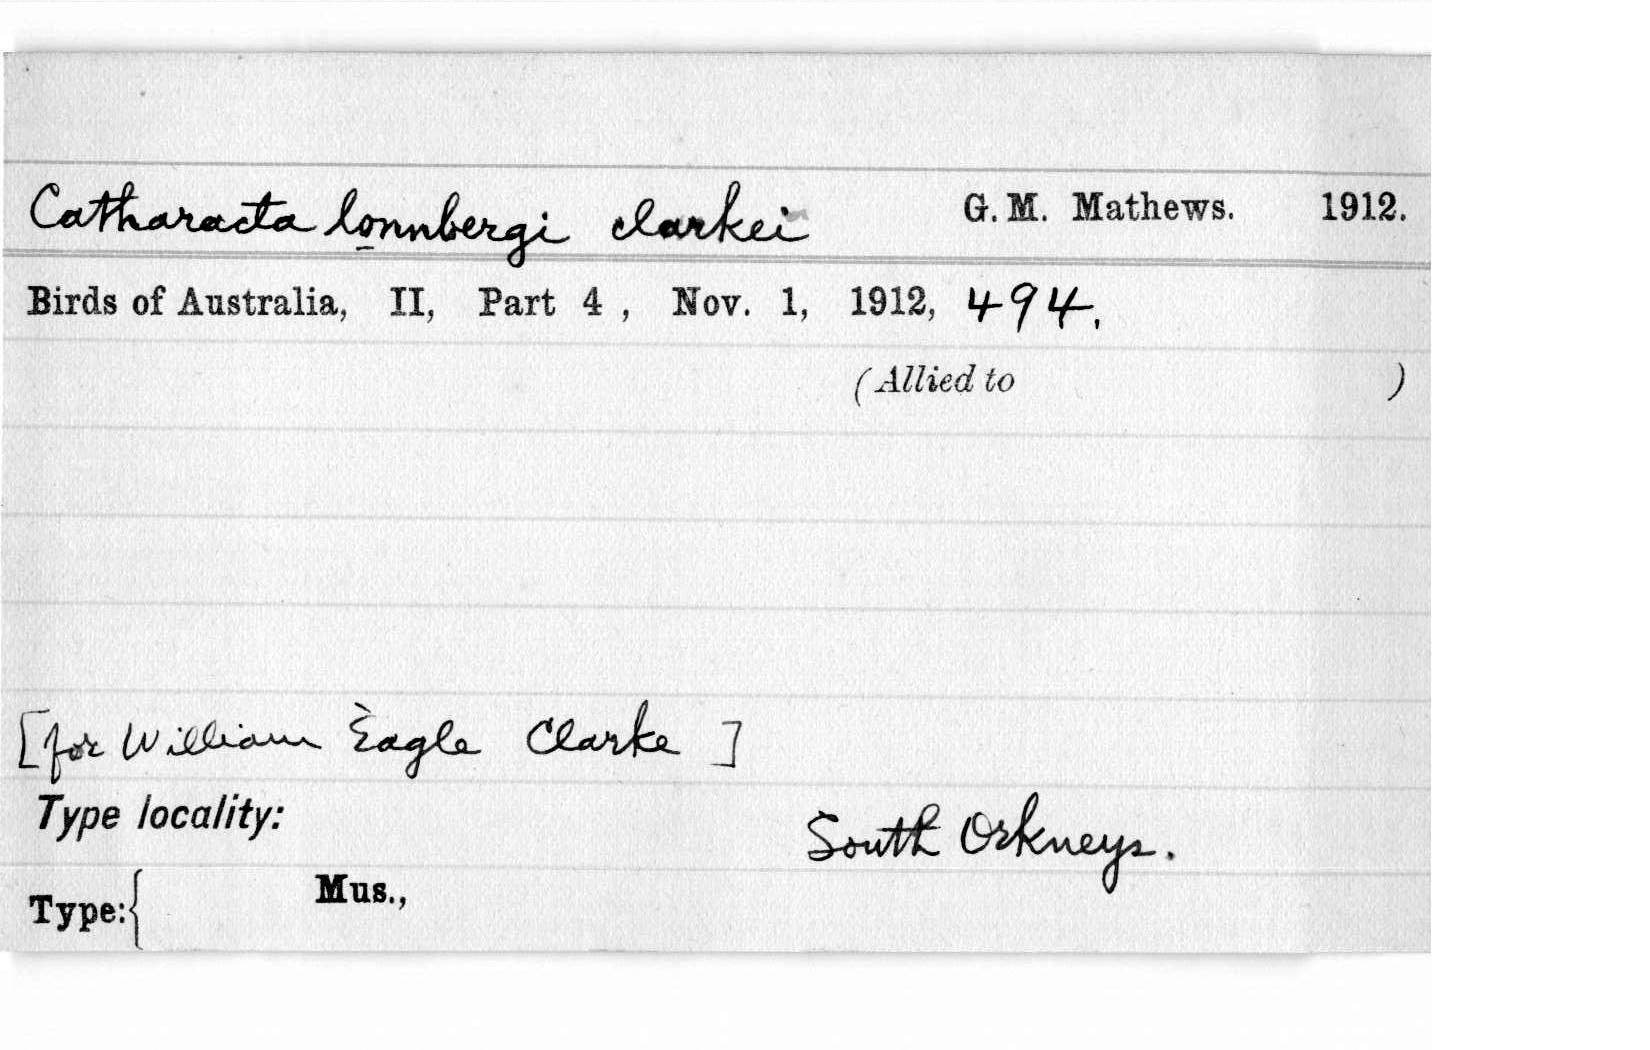 Catharacta lonnbergi clarkei G. M. Mathews. 1912.
Birds of Australia, II, Part 4 , Nov. 1, 1912, 494.
(Allied to )
[for William Eagle Clarke ]
Type locality:
South Orkneys.
Type:{ Mus.,